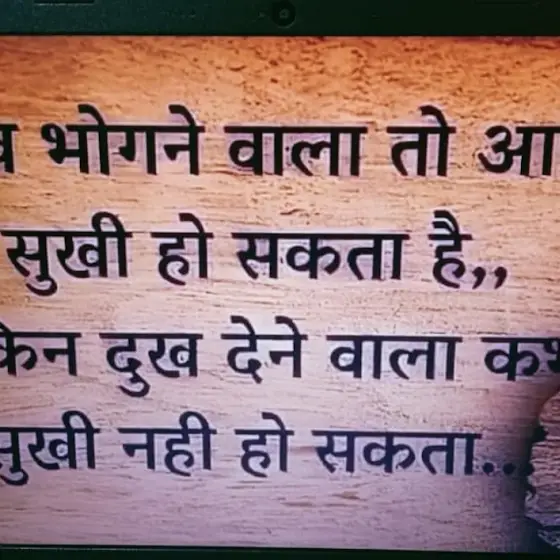 भोगने वाला तो
सुखी हो सकता है,,
दुख देने वाला
सुखी नही हो सकता...